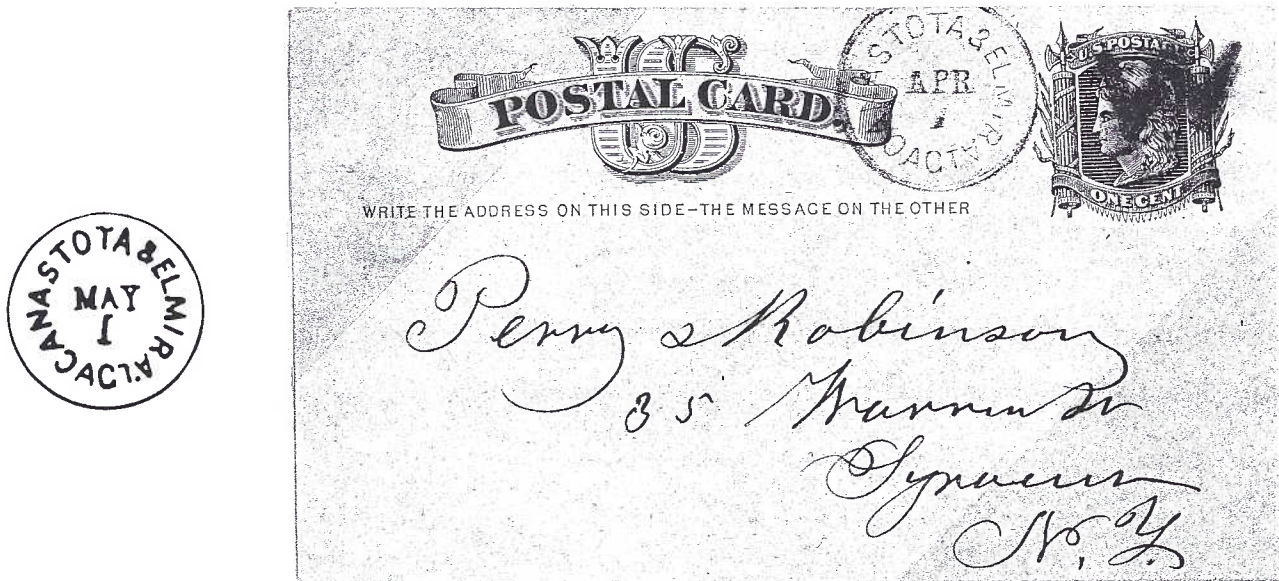 CANASTOTA & ELMIRA
MAY
1
US
POSTAL CARD.
ASTOTA & ELMIRA
APR
1
U.S. POSTAGE
ONE CENT
WRITE THE ADDRESS ON THIS SIDE-THE MESSAGE ON THE OTHER
Perry & Robinson
35 Warren St
Syracuse
N.Y.